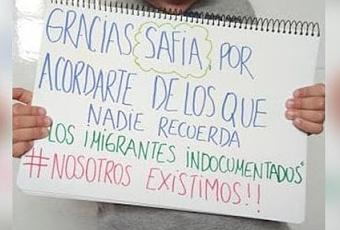 GRACIAS SAFIA POR
ACORDARTE DE LOS QUE
NADIE RECUERDA
LOS IMIGRANTES INDOCUMENTADOS
#NOSOTROS EXISTIMOS!!